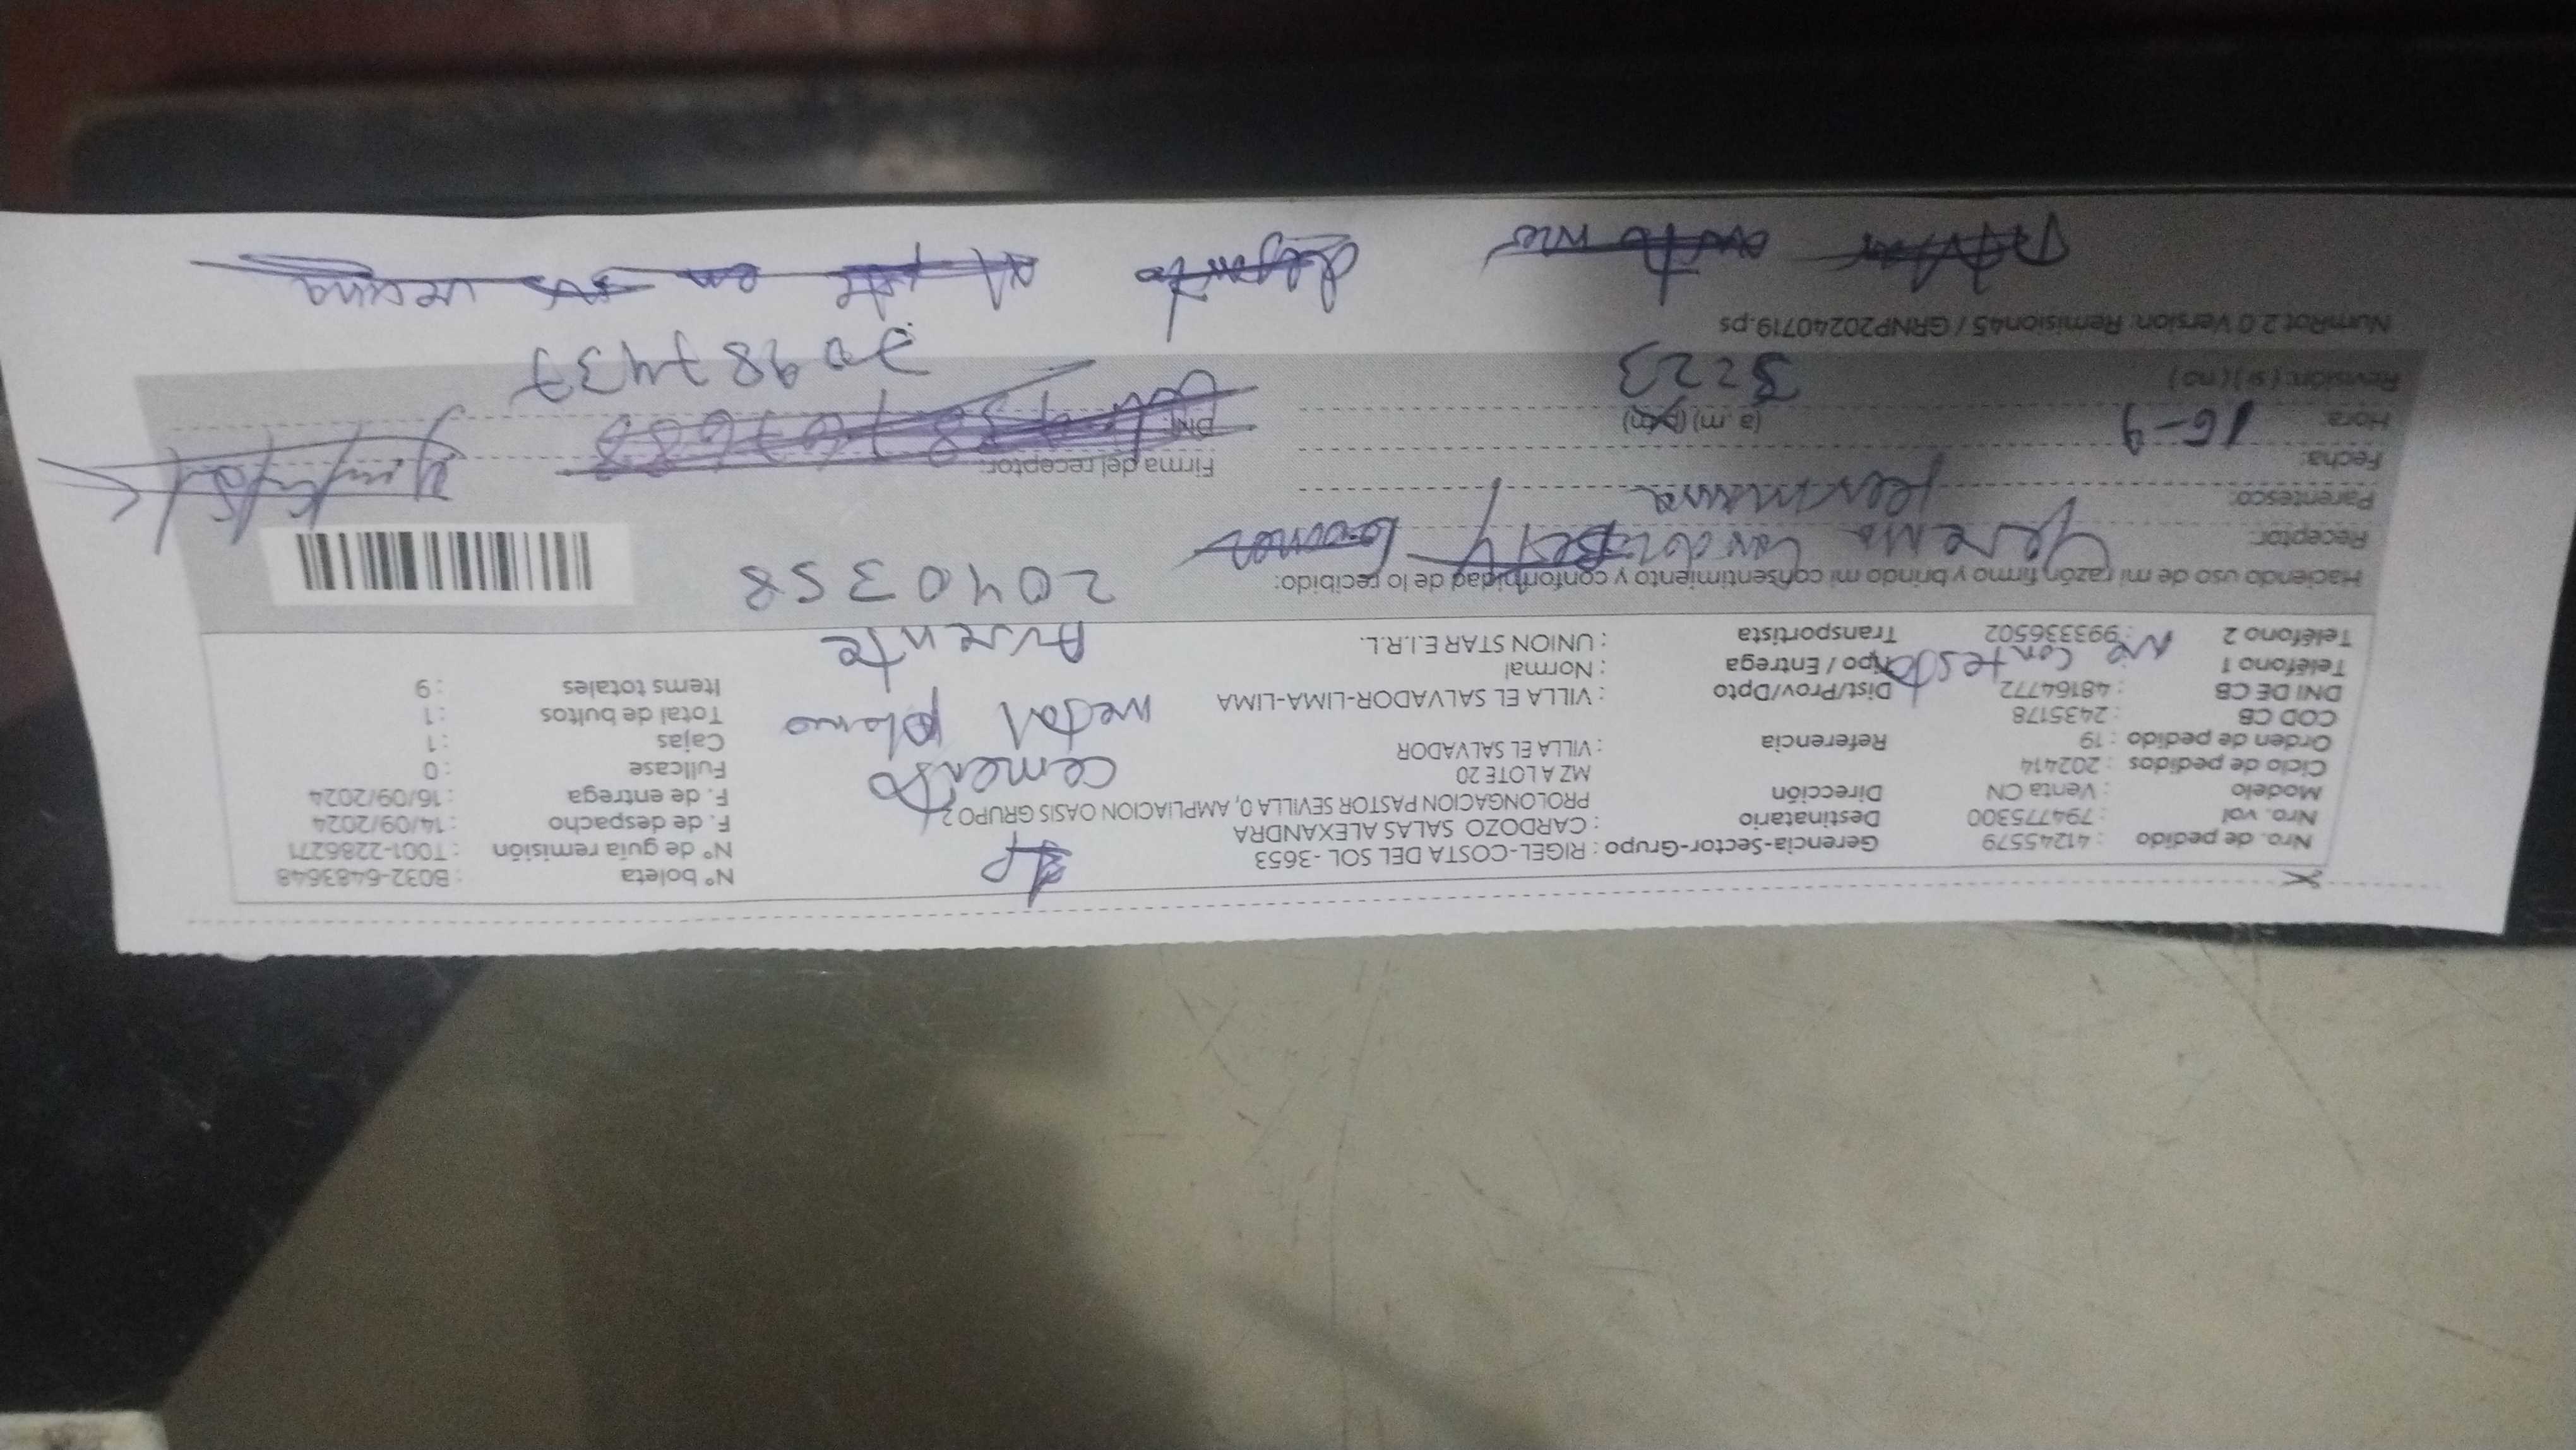 Nro. de pedido : 41245579 Gerencia-Sector-Grupo : RIGEL-COSTA DEL SOL - 3653 1P Nº boleta : B032-6483648
Nro. vol : 794775300 Destinatario : CARDOZO SALAS ALEXANDRA Nº de guía remisión : T001-2286271
Modelo : Venta CN Dirección PROLONGACION PASTOR SEVILLA 0, AMPLIACION OASIS GRUPO 2 F. de despacho : 14/09/2024
Ciclo de pedidos : 202414 MZ A LOTE 20 cemento F. de entrega : 16/09/2024
Orden de pedido : 19 Referencia : VILLA EL SALVADOR Fullcase : 0
COD CB : 2435178 Cajas : 1
DNI DE CB : 48164772 Dist/Prov/Dpto : VILLA EL SALVADOR-LIMA-LIMA metal plomo Total de bultos : 1
Teléfono 1 No contesto Tipo / Entrega : Normal Items totales : 9
Teléfono 2 : 993336502 Transportista : UNION STAR E.I.R.L. Ausente
Haciendo uso de mi razón firmo y brindo mi consentimiento y conformidad de lo recibido: 2040358
Receptor: Yesenia
Parentesco: hermana
Fecha: 16-9 Firma del receptor:
Hora: (a. m) (p. m) DNI:
Revisión: ( si ) ( no ) 3:23 70987437
NumRot 2.0 Version: Remision45 / GRNP20240719.ps